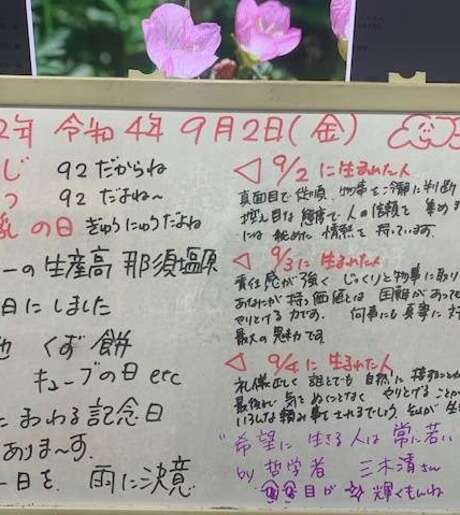 2年 令和4年 9月2日(金)
じ 92だからね
つ 92だよね〜
乳の日 ぎゅうにゅうだよね
ーの生産高 那須塩原
日にしました
他 くず餅
キューブの日 etc
にまつわる記念日
あります〜す.
一日を、雨に決意
◁ 9/2 に生まれた人
真面目で従順、物事を冷静に判断
控え目な態度で人の信頼を 集め
には 秘めた 情熱を 持っています.
◁ 9/3 に生まれた人
責任感が強く じっくりと物事に取り
あなたが持つ価値とは 困難があっても
やりとげる力です. 何事にも真摯に 対
最大の魅力です
◁ 9/4 に生まれた人
礼儀正しく 誰とでも 自然に 接すること
最後まで 気を ぬくことなく やりとげる ことが
いろんな 頼み事
"希望に 生きる人は 常に若い
by 哲学者 三木清さん
目が 輝くもんね